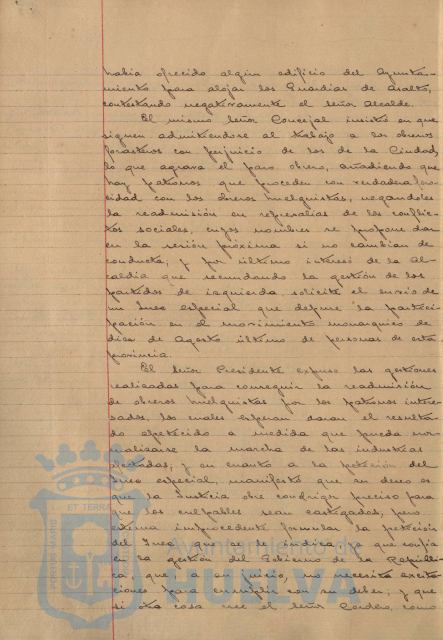 había ofrecido algún edificio del Ayunta-
miento para alojar los Guardias de Asalto,
contestando negativamente el señor Alcalde.
El mismo señor Concejal insistió en que
siguen admitiéndose al trabajo a los obreros
forasteros con perjuicio de los de la Ciudad,
lo que agrava el paro obrero, añadiendo que
hay patronos que proceden con verdadera fero-
cidad con los obreros huelguistas, negándoles
la readmisión en represalias de los conflic-
tos sociales, cuyos nombres se propone dar
en la sesión próxima si no cambian de
conducta; y por último interesó de la Al-
caldía que secundando la gestión de los
partidos de izquierda, solicite el envío de
un Juez especial que depure la partici-
pación en el movimiento monárquico de
diez de Agosto último de personas de esta
provincia.
El señor Presidente expuso las gestiones
realizadas para conseguir la readmisión
de obreros huelguistas por los patronos intere-
sados, los cuales esperan daran el resulta-
do apetecido a medida que pueda nor-
malizarse la marcha de las industrias
afectadas; y en cuanto a la petición del
Juez especial, manifestó que su deseo es
que la Justicia obre con rigor preciso para
que los culpables sean castigados, pero
estima improcedente formular la petición
del Juez que se le indica, ya que confía
en la gestión del Gobierno de la Repúbli-
ca, que, a su juicio, no necesita excita-
ciones para cumplir con su deber; y que
si otra cosa cree el señor Cordero, como
Ayuntamiento de
HUELVA